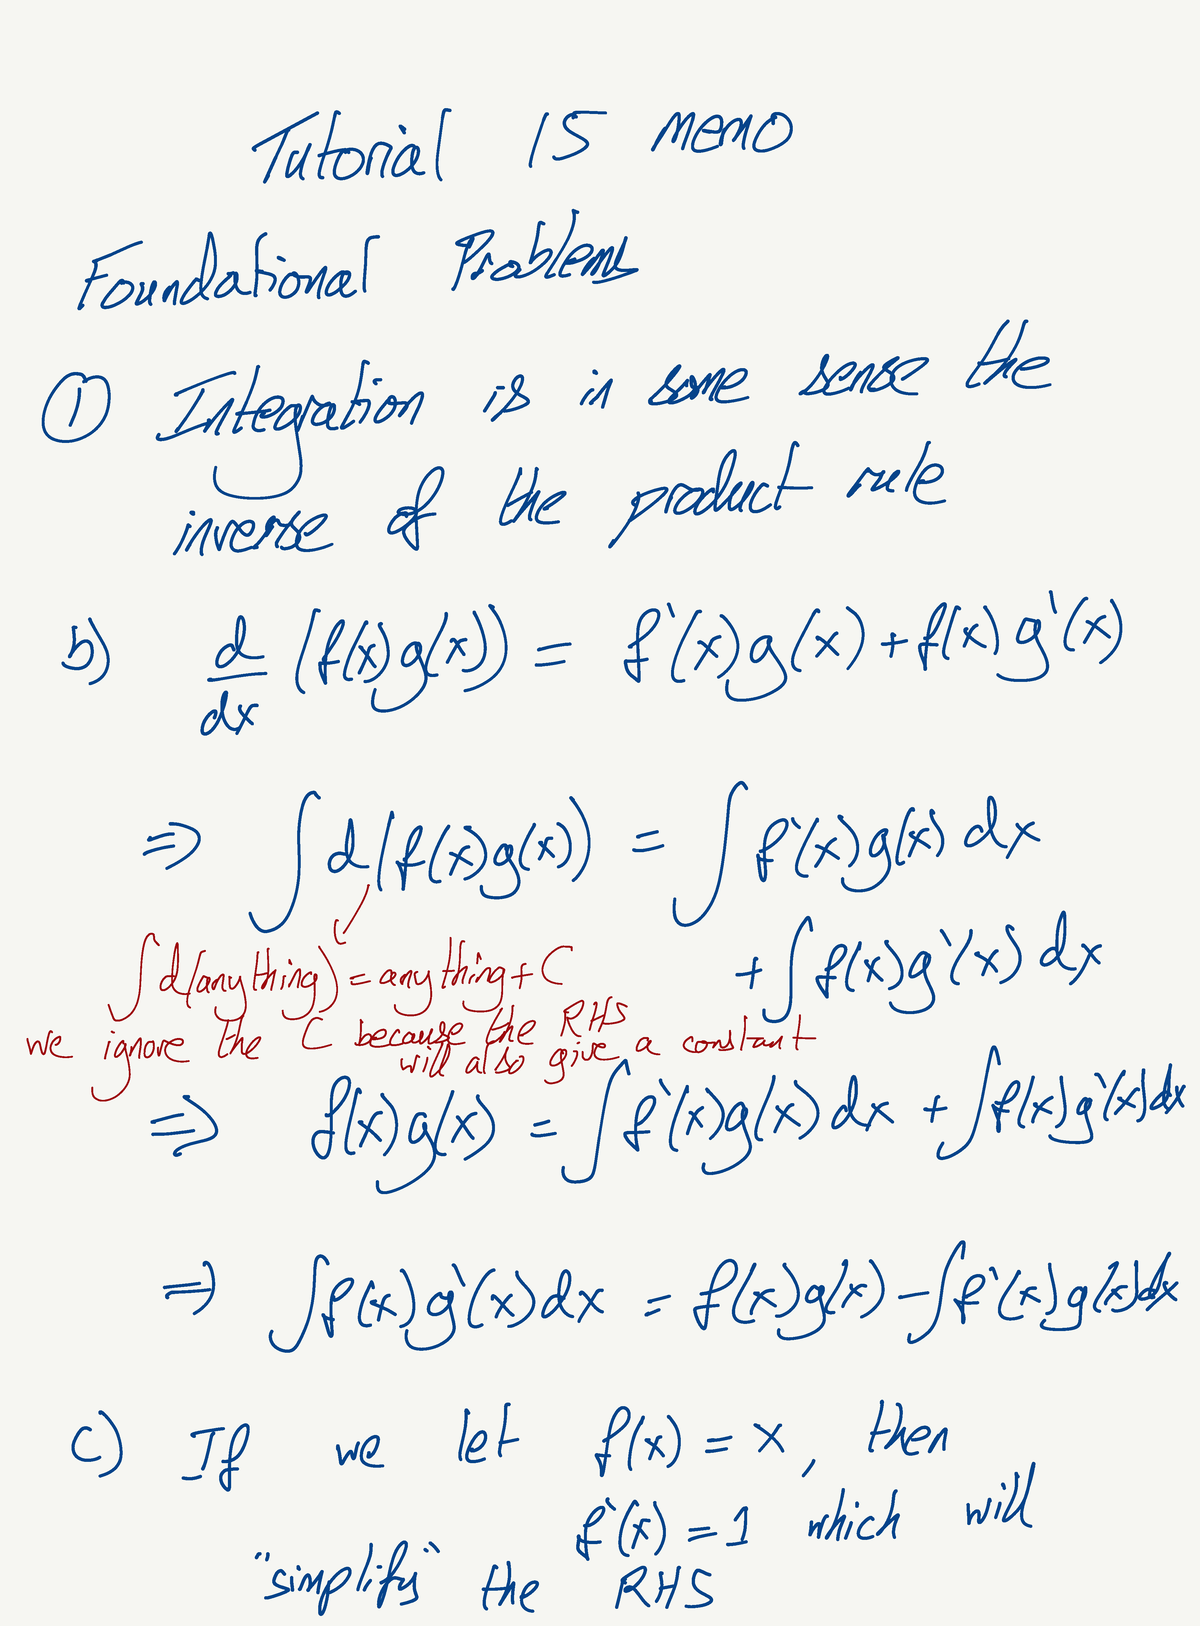 Tutorial 15 memo
Foundational Problems
① Integration is in some sense the
inverse of the product rule
b) d/dx (f(x)g(x)) = f'(x)g(x) + f(x)g'(x)
⇒ ∫d(f(x)g(x)) = ∫f'(x)g(x) dx
+ ∫f(x)g'(x) dx
∫d(anything) = anything + C
we ignore the C because the RHS
will also give a constant
⇒ f(x)g(x) = ∫f'(x)g(x) dx + ∫f(x)g'(x)dx
⇒ ∫f(x)g'(x)dx = f(x)g(x) - ∫f'(x)g(x)dx
c) If we let f(x) = x, then
f'(x) = 1 which will
"simplify" the RHS